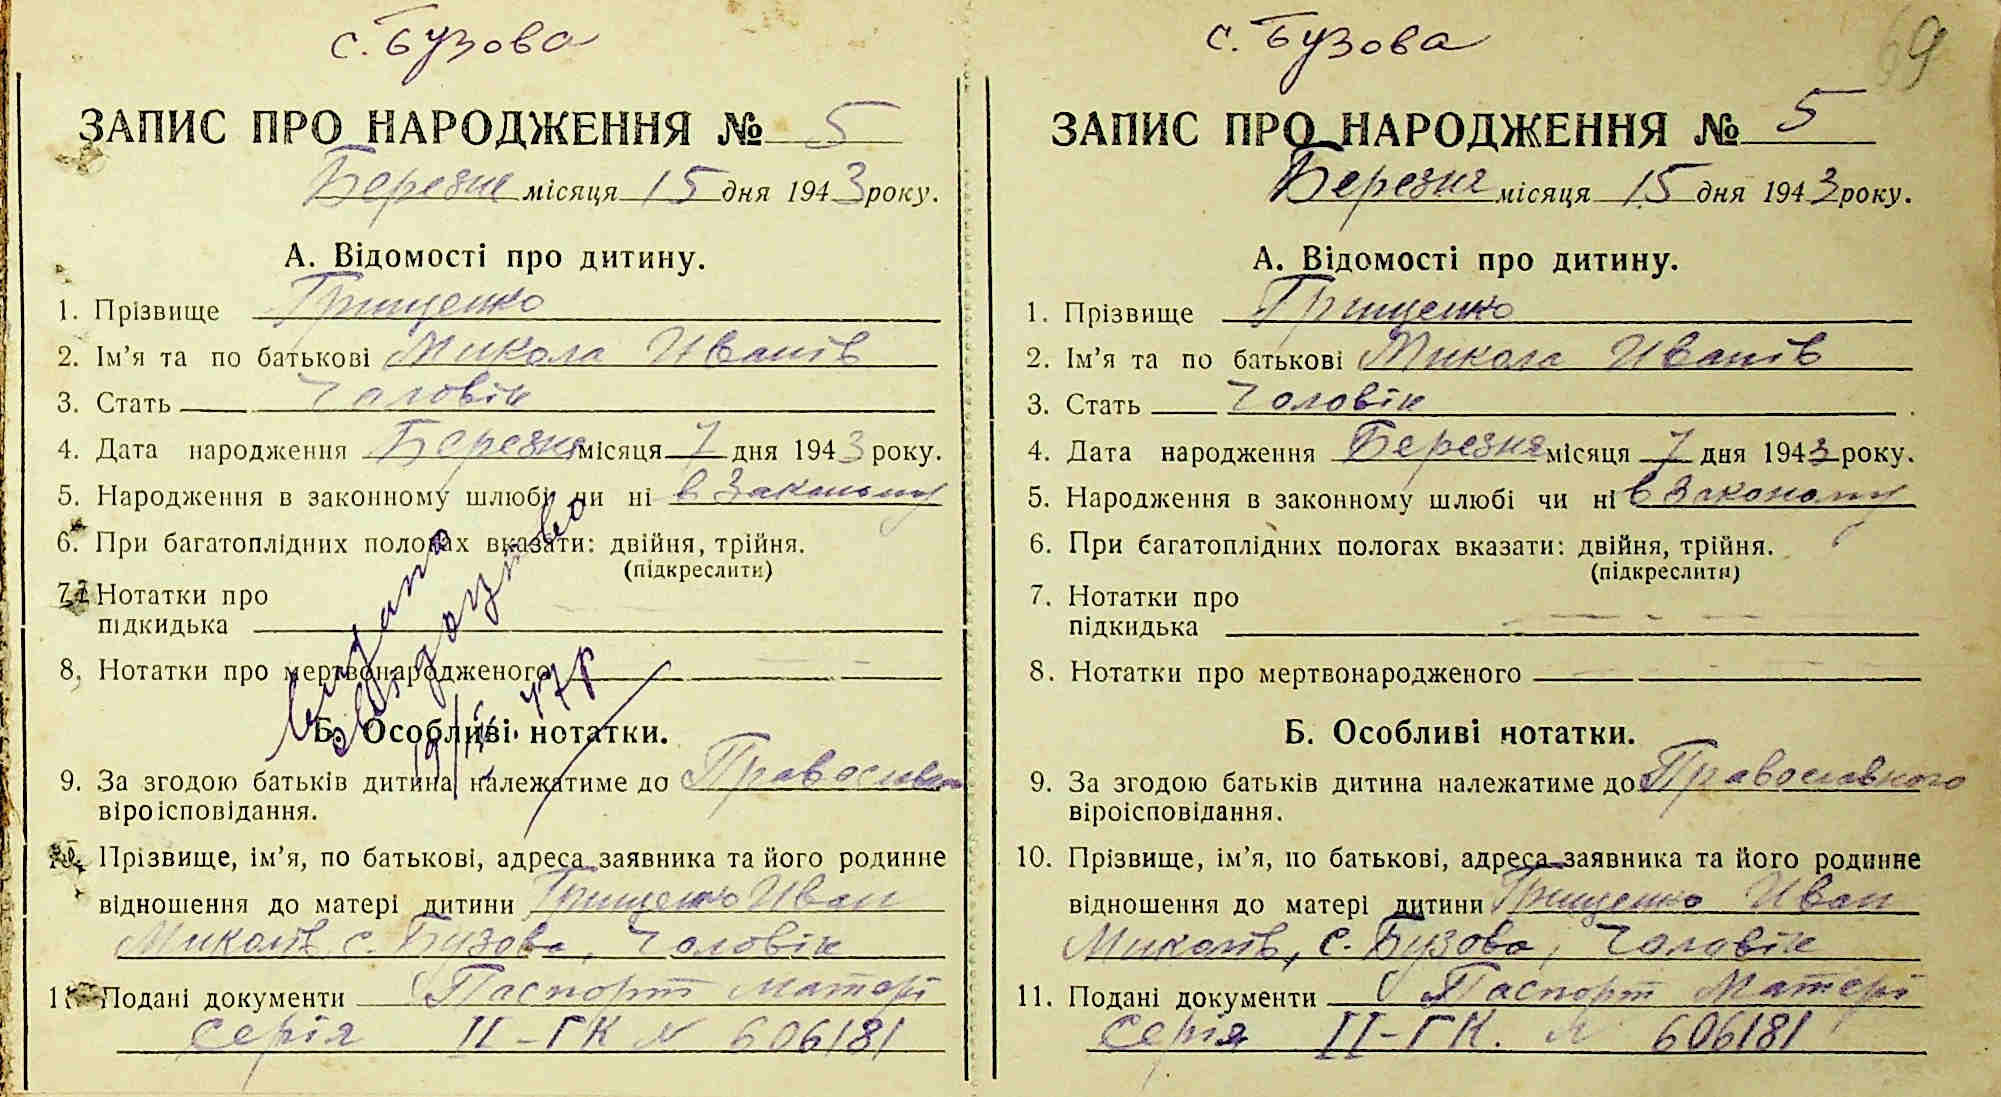 с. Бузова
ЗАПИС ПРО НАРОДЖЕННЯ № 5
Березня місяця 15 дня 1943 року.
А. Відомості про дитину.
1. Прізвище Грищенко
2. Ім'я та по батькові Микола Иванів
3. Стать Чоловік
4. Дата народження Березня місяця 7 дня 1943 року.
5. Народження в законному шлюбі чи ні в Законому
6. При багатоплідних пологах вказати: двійня, трійня.
(підкреслити)
7. Нотатки про
підкидька
8. Нотатки про мертвонародженого
Б. Особливі нотатки.
9. За згодою батьків дитина належатиме до Православн
віроісповідання.
10. Прізвище, ім'я, по батькові, адреса заявника та його родинне
відношення до матері дитини Грищенко Иван
Миколів, с. Бузова, Чоловік
11. Подані документи Паспорт Матері
Серія II-ГК N 606181
видано
с. Бузова
69
ЗАПИС ПРО НАРОДЖЕННЯ № 5
Березня місяця 15 дня 1943 року.
А. Відомості про дитину.
1. Прізвище Грищенко
2. Ім'я та по батькові Микола Иванів
3. Стать Чоловік
4. Дата народження Березня місяця 7 дня 1943 року.
5. Народження в законному шлюбі чи ні в Законому
6. При багатоплідних пологах вказати: двійня, трійня.
(підкреслити)
7. Нотатки про
підкидька
8. Нотатки про мертвонародженого
Б. Особливі нотатки.
9. За згодою батьків дитина належатиме до Православного
віроісповідання.
10. Прізвище, ім'я, по батькові, адреса заявника та його родинне
відношення до матері дитини Грищенко Иван
Миколів, с. Бузова, Чоловік
11. Подані документи Паспорт Матері
Серія II-ГК. N 606181